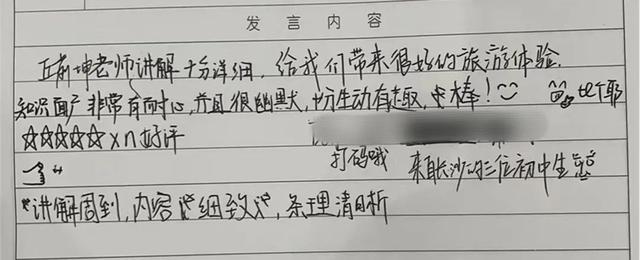 发言内容
丘前坤老师讲解十分详细,给我们带来很好的旅游体验.
知识面广非常有耐心,并且很幽默,十分生动有趣,棒!比个耶
☆☆☆☆☆xn好评
打码哦 来自长沙的三位初中生
讲解周到,内容细致,条理清晰